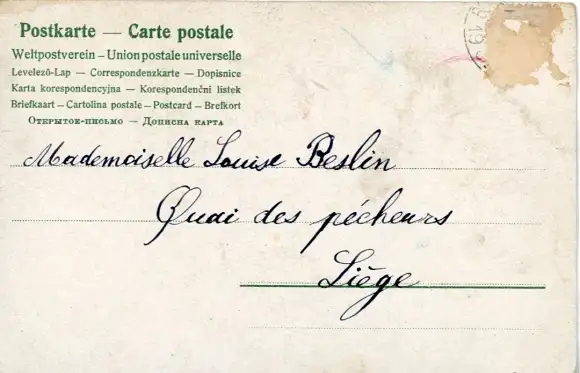 Postkarte — Carte postale
Weltpostverein – Union postale universelle
Levelező-Lap — Correspondenzkarte — Dopisnice
Karta korespondencyjna — Korespondenční listek
Briefkaart – Cartolina postale – Postcard – Brefkort
Открытое-письмо — Дописна карта
Mademoiselle Louise Beslin
Quai des pécheurs
Liège